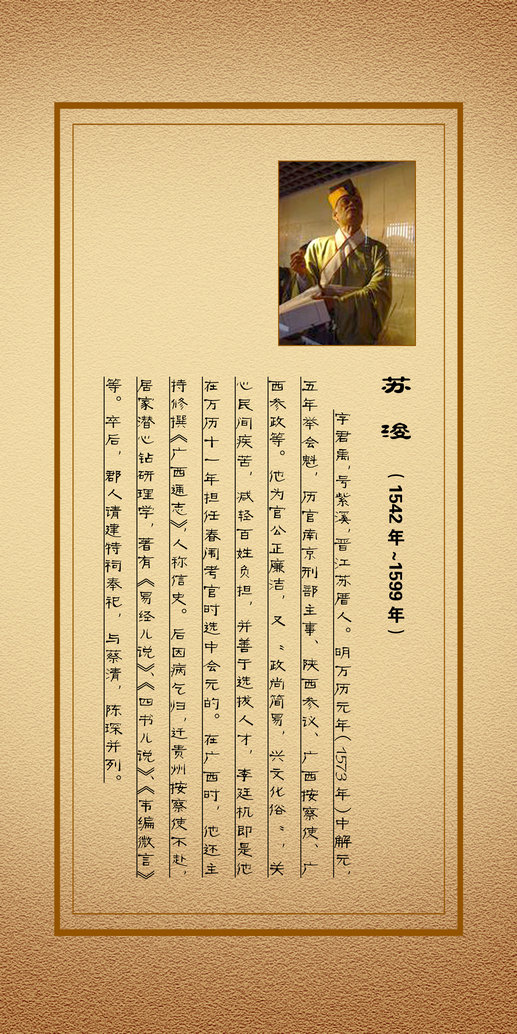 苏浚（1542年~1599年）
字君禹，号紫溪，晋江苏厝人。明万历元年（1573年）中解元，
五年举会魁，历官南京刑部主事、陕西参议、广西按察使、广
西参政等。他为官公正廉洁，又“政尚简易，兴文化俗”，关
心民间疾苦，减轻百姓负担，并善于选拔人才，李廷机即是他
在万历十一年担任春闱考官时选中会元的。在广西时，他还主
持修撰《广西通志》，人称信史。后因病乞归，迁贵州按察使不赴，
居家潜心钻研理学，著有《易经儿说》、《四书儿说》、《韦编微言》
等。卒后，郡人请建特祠奉祀，与蔡清，陈琛并列。